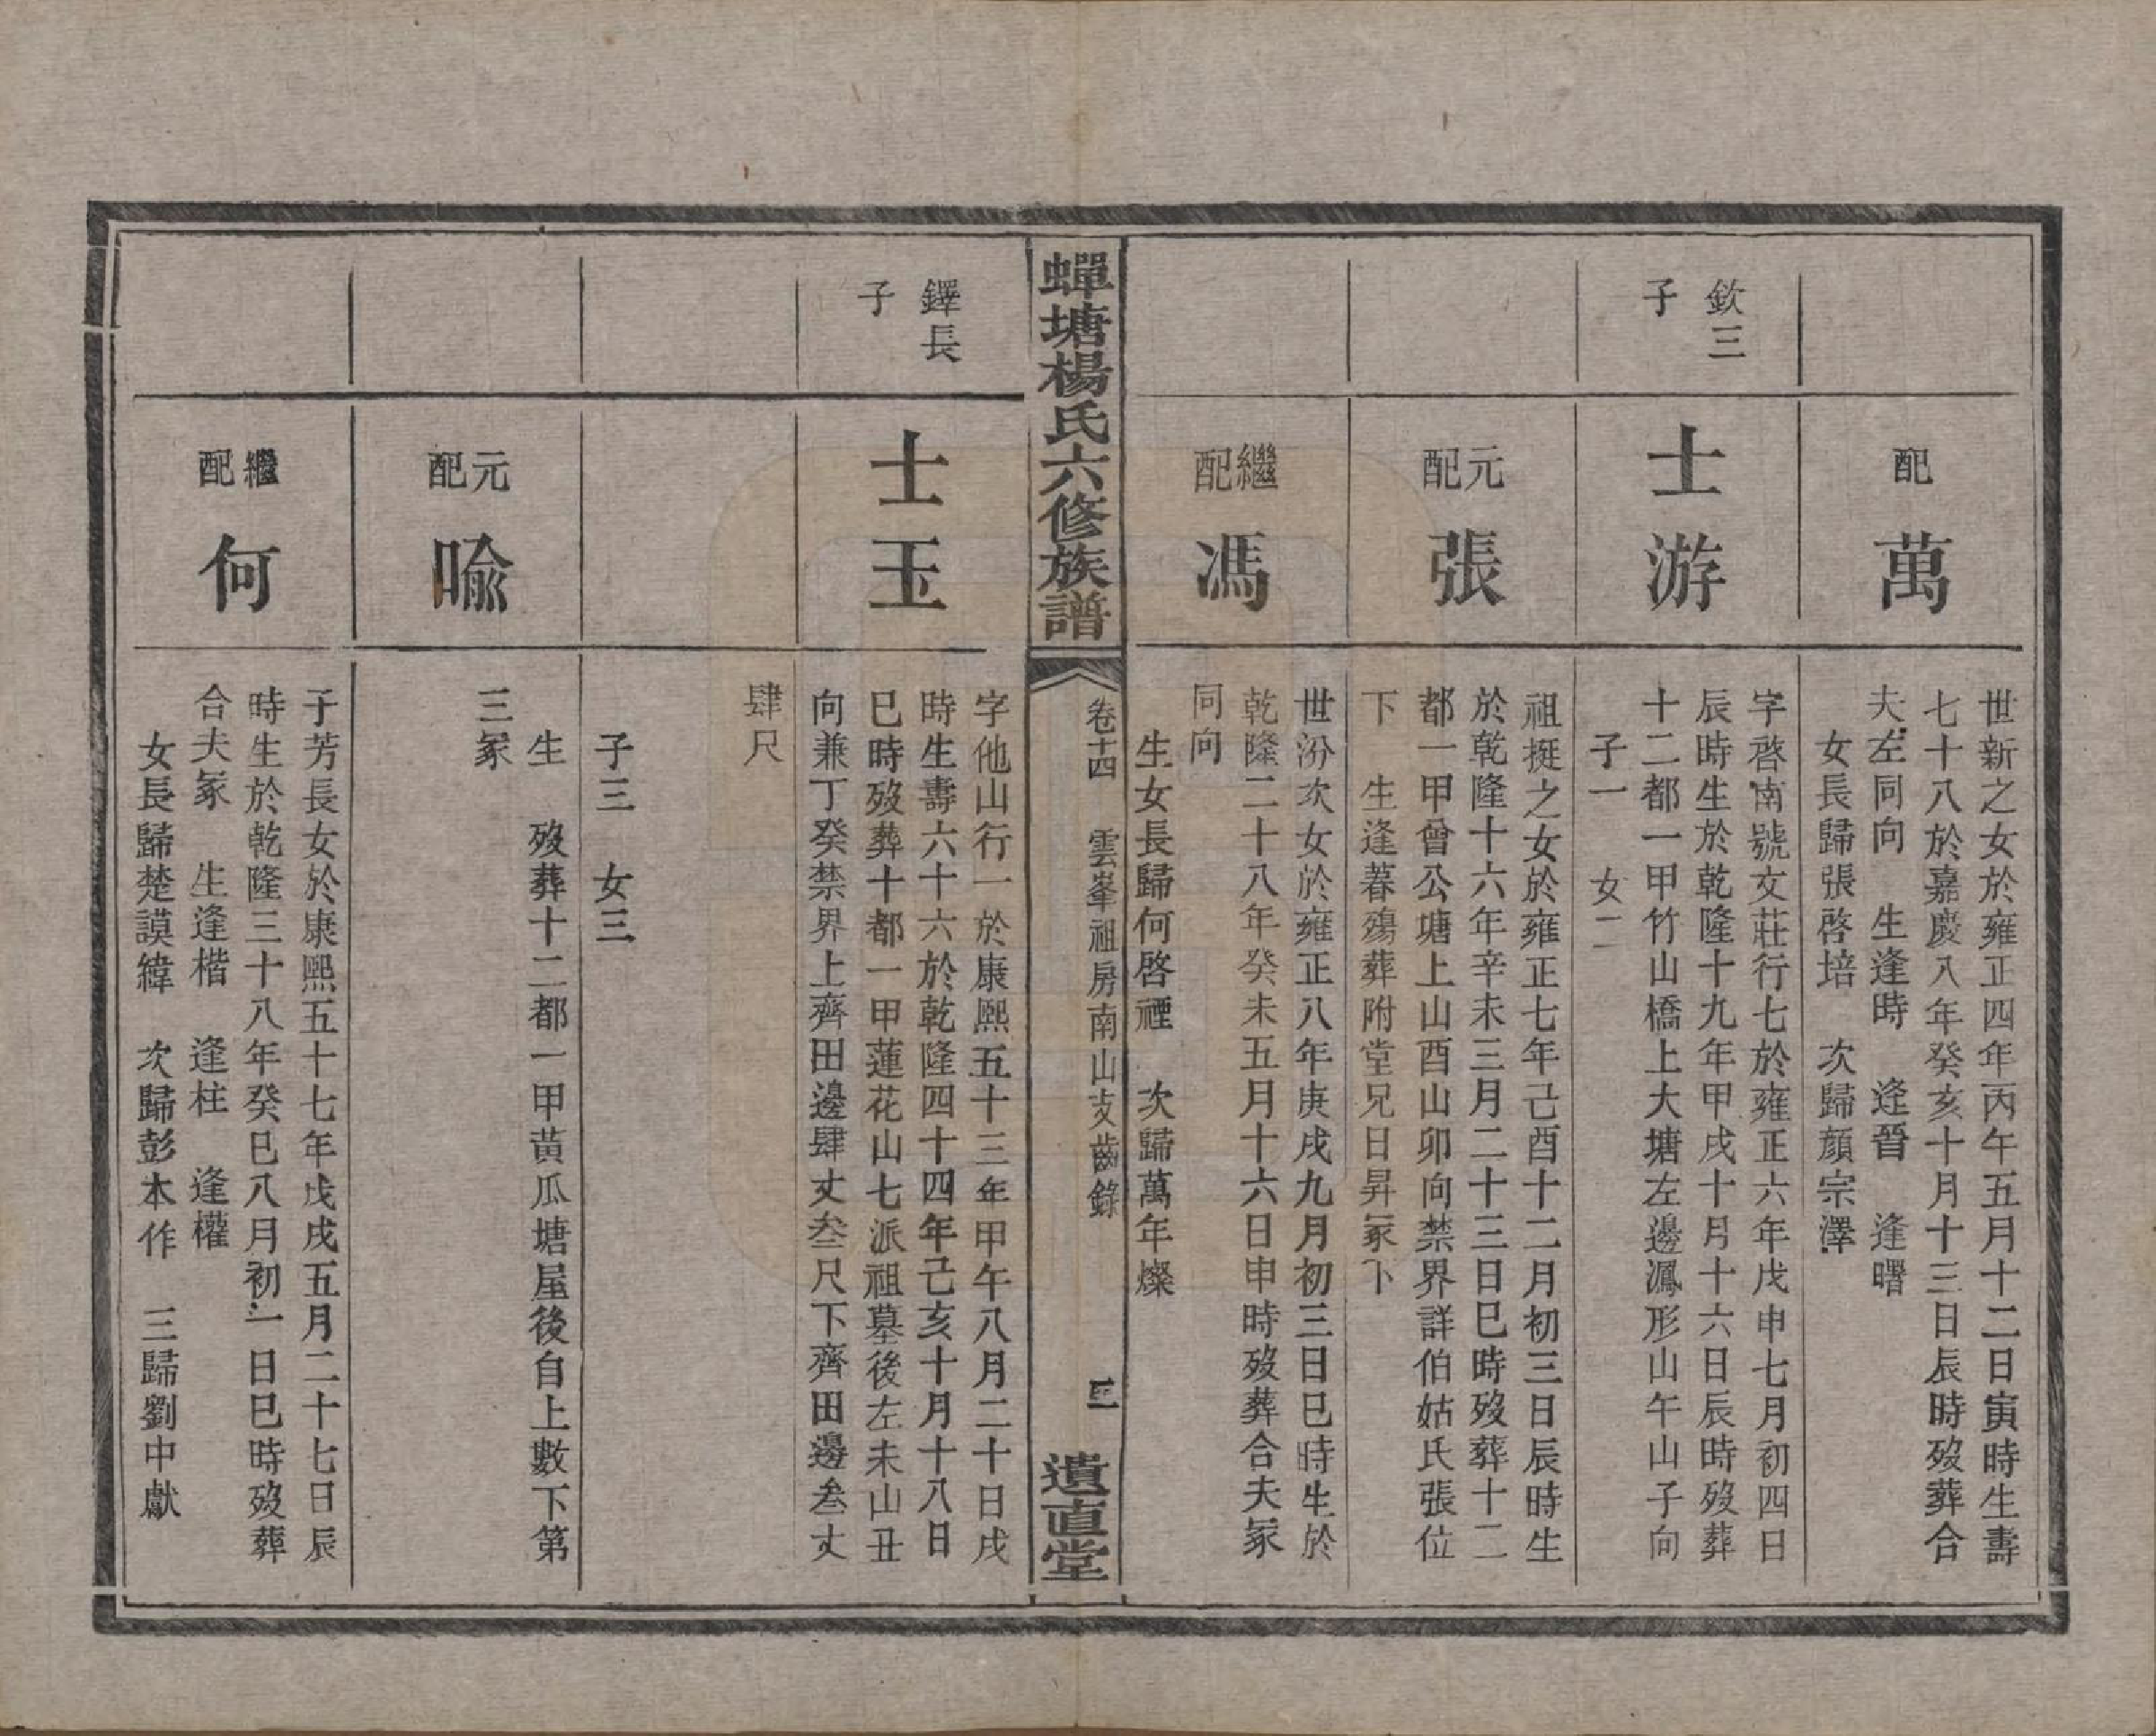 配
萬
世新之女於雍正四年丙午五月十二日寅時生壽
七十八於嘉慶八年癸亥十月十三日辰時歿葬合
夫左同向　生逢時　逢晉　逢曙
女長歸張啓培　次歸顏宗澤
欽三
子
士游
字啓南號文莊行七於雍正六年戊申七月初四日
辰時生於乾隆十九年甲戌十月十六日辰時歿葬
十二都一甲竹山橋上大塘左邊鳳形山午山子向
子一　女二
元
配
張
祖挺之女於雍正七年己酉十二月初三日辰時生
於乾隆十六年辛未三月二十三日巳時歿葬十二
都一甲曾公塘上山酉山卯向禁界詳伯姑氏張位
下　生逢暮殤葬附堂兄日昇冢下
繼
配
馮
世汾次女於雍正八年庚戌九月初三日巳時生於
乾隆二十八年癸未五月十六日申時歿葬合夫冢
同向
生女長歸何啓禋　次歸萬年燦
蟬塘楊氏六修族譜
卷十四　雲峯祖房南山支齒錄
三
遺直堂
鐸長
子
士玉
字他山行一於康熙五十三年甲午八月二十日戌
時生壽六十六於乾隆四十四年己亥十月十八日
巳時歿葬十都一甲蓮花山七派祖墓後左未山丑
向兼丁癸禁界上齊田邊肆丈叁尺下齊田邊叁丈
肆尺
子三　女三
元
配
喻
生　歿葬十二都一甲黃瓜塘屋後自上數下第
三冢
繼
配
何
子芳長女於康熙五十七年戊戌五月二十七日辰
時生於乾隆三十八年癸巳八月初一日巳時歿葬
合夫冢　生逢楷　逢柱　逢權
女長歸楚謨緯　次歸彭本作　三歸劉中獻